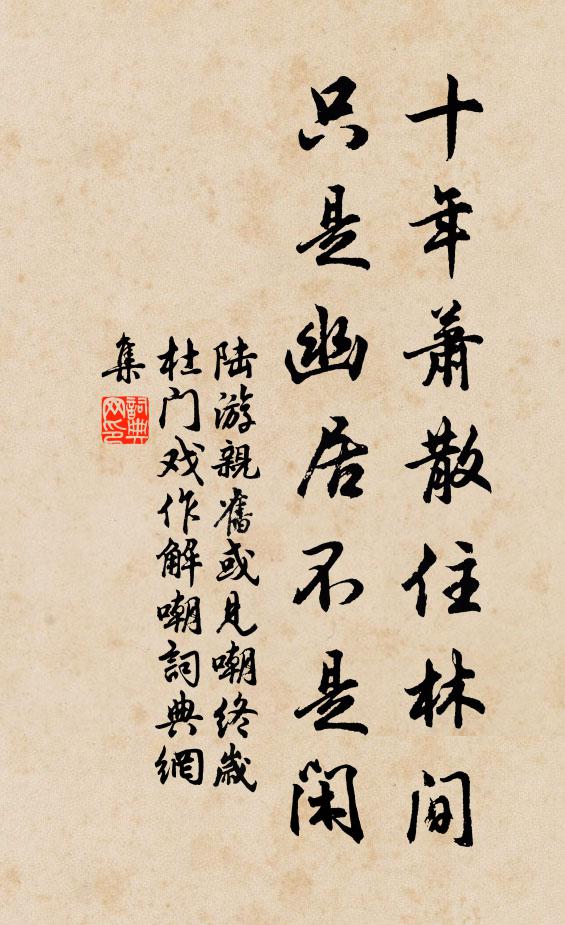 十年萧散住林间
只是幽居不是闲
陆游親舊或見嘲终歲
杜门戏作解嘲詞典網
集
詞典网印